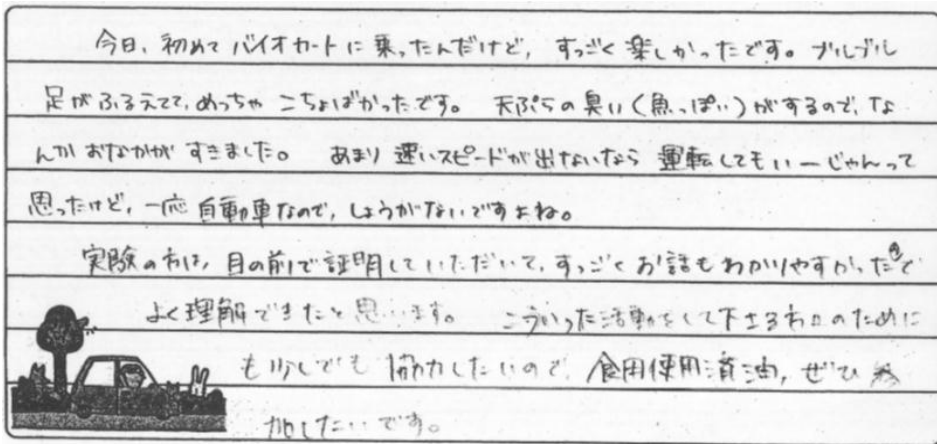 今日、初めてバイオカートに乗ったんだけど、すっごく楽しかったです。ブルブル
足がふるえてて、めっちゃこちょばかったです。天ぷらの臭い(魚っぽい)がするので、な
んかおなかがすきました。あまり速いスピードが出ないなら運転してもいーじゃんって
思ったけど、一応自動車なので、しょうがないですよね。
実験の方は、目の前で証明していただいて、すっごくお話もわかりやすかったので
よく理解できたと思います。こういった活動をして下さる方々のために
も少しでも協力したいので、食用使用済油、ぜひ参
加したいです。